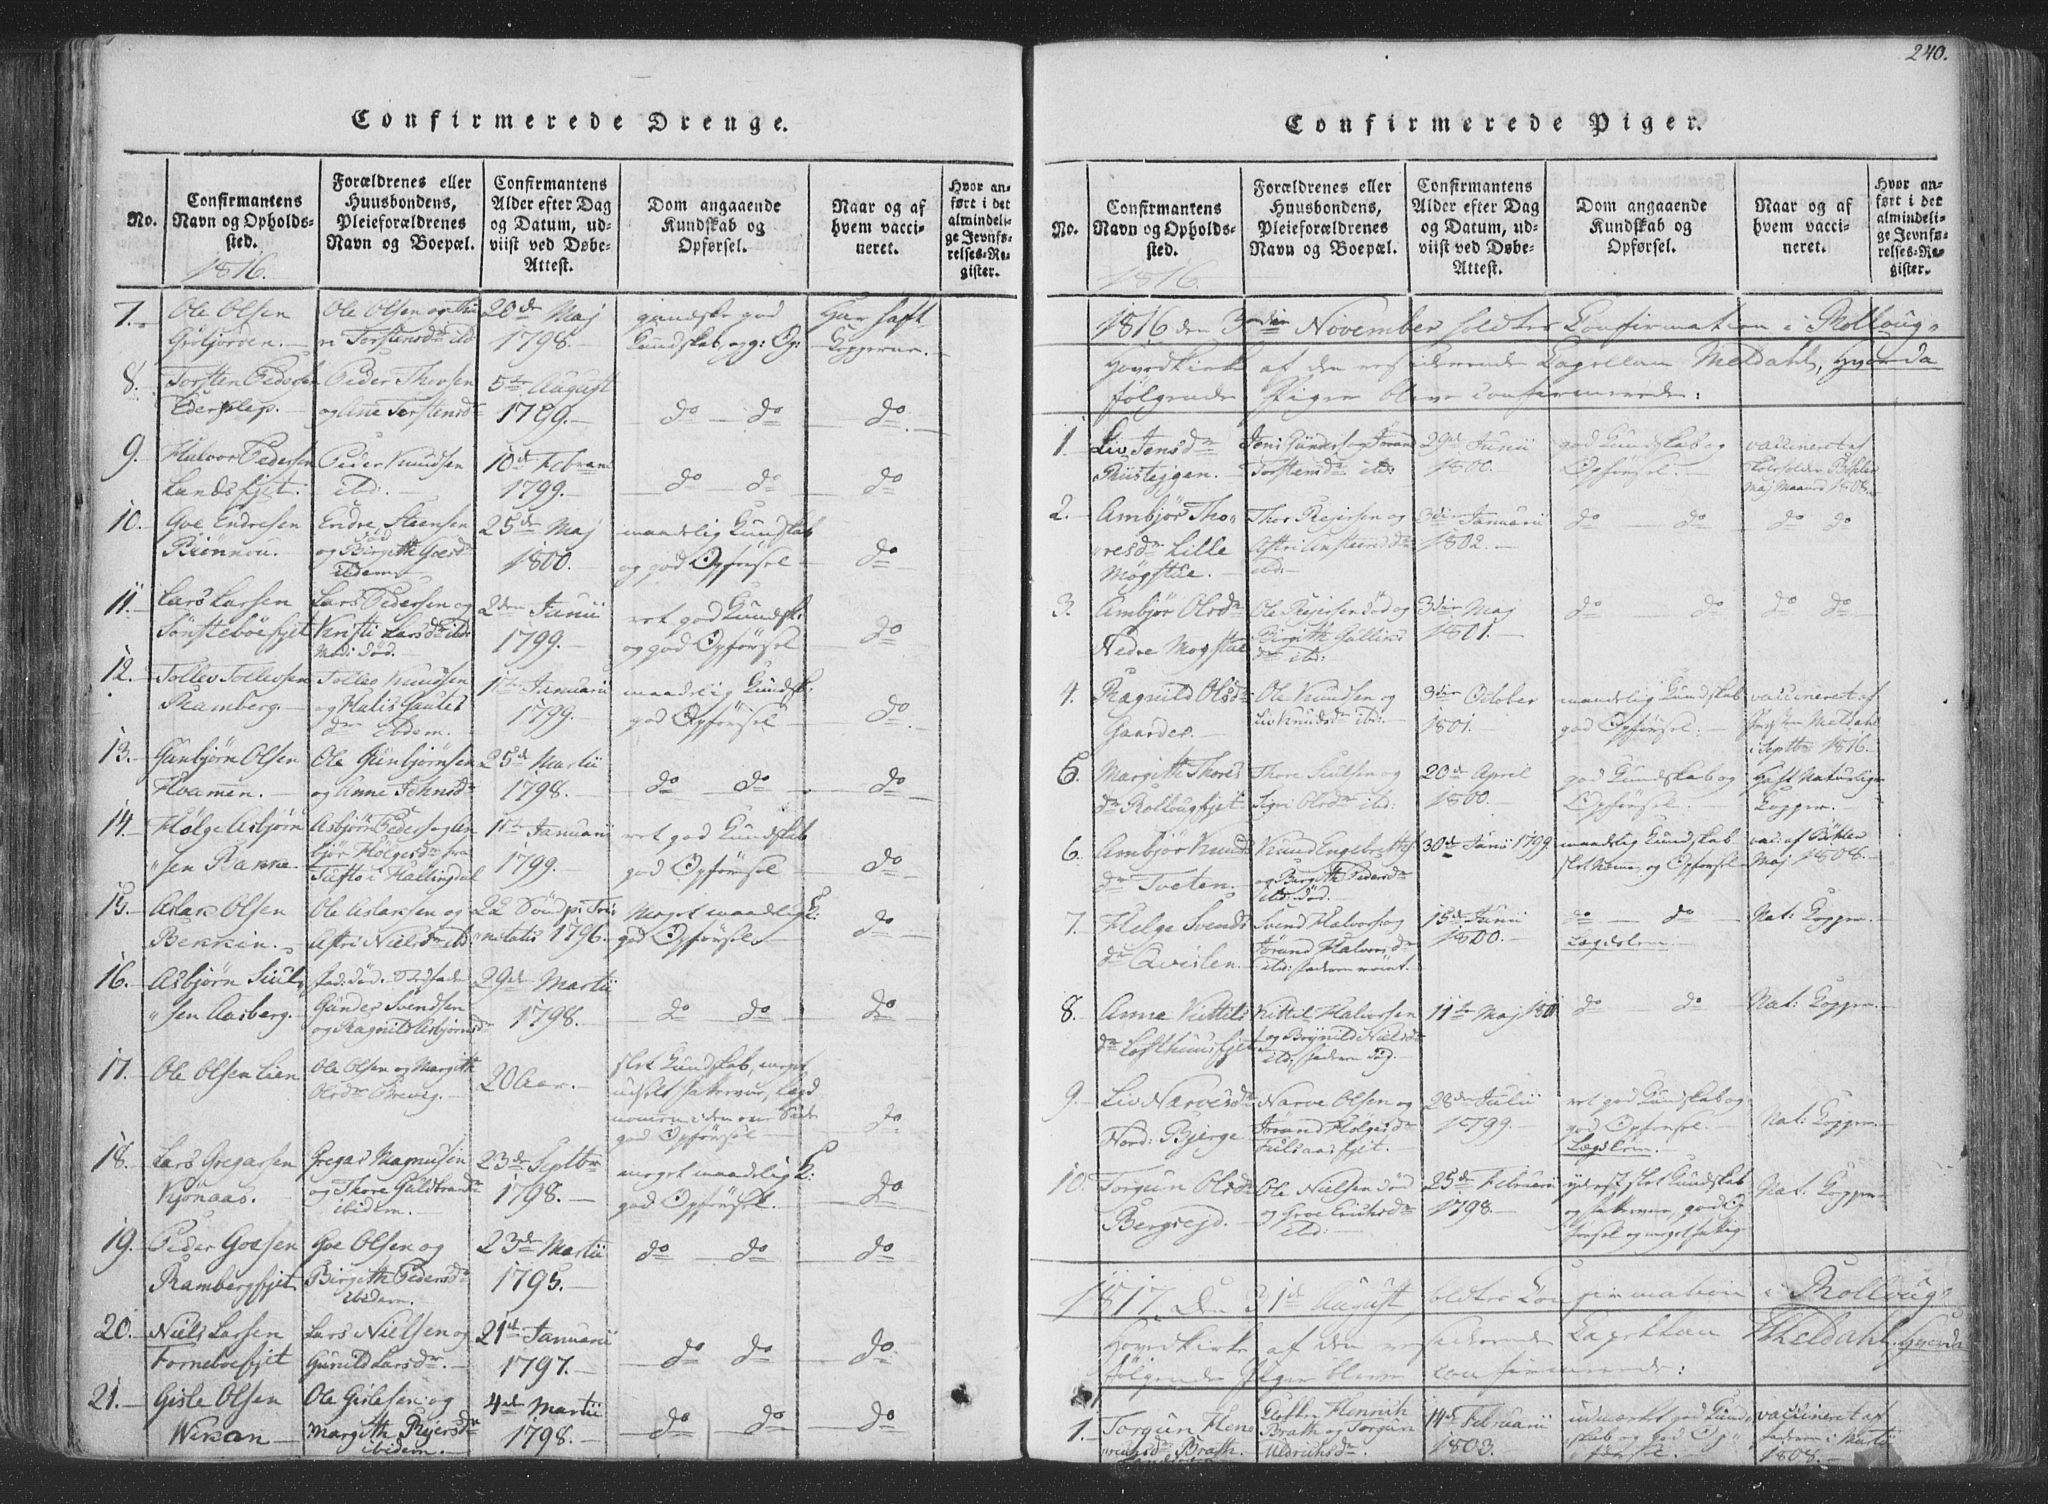 240.
Confirmerede Drenge.
No.
Confirmantens
Navn og Opholds-
sted.
1816.
Forældrenes eller
Huusbondens,
Pleieforældrenes
Navn og Boepæl.
Confirmantens
Alder efter Dag
og Datum, ud-
viist ved Døbe-
Attest.
Dom angaaende
Kundskab og
Opførsel.
Naar og af
hvem vacci-
neret.
Hvor an-
ført i det
almindeli-
ge Jevnfø-
relses-Re-
gister.
7.
Ole Olsen
Ole Olsen og
n Torstensdr ibd
20de Maj
1798.
gandske god
Kundskab og g: Op:
Har haft
Kopperne.
8.
Torsten Pedersen
Ederklep.
Peder Thovsen
og Ane Torstensdr
5te August
1799.
do do
do
9.
Halvor Pedersen
Landsfjet.
Peder Knudsen
ibd:
10de Februar
1799.
do do
do
10.
Goe Endresen
Brønnou.
Endre Steensen
død
og Birgith Goesdr
ibidem
25de Maj
1800.
maadelig Kundskab
og god Opførsel
do
11.
Lars Larsen
Sønstebøefjet
Lars Pedersen og
Kirsti Larsdr ibd
Mod: død.
2den Junii
1799.
ret god Kundsk:
og god Opførsel
do
12.
Tollev Tollevsen
Ramberg.
Tollev Knudsen
og Halis Gautes
dr ibdem.
1te Januarii
1799.
maadelig Kundsk:
god Opførsel
do
13.
Gunbjørn Olsen
Hvammen.
Ole Gunbjørnsen
og Anne Johnsdr
25de Martii
1798.
do do
do
14.
Hølge Asbjørn
"sen Bakke
Asbjørn Peders og Am
bjør Hølgesdr fra
Tufto i Hallingdal
1te Januarii
1799.
ret god Kundskab
god Opførsel
do
15.
Aslak Olsen
Bekkin.
Ole Aslaksen og
Astri Nielsdr ibd
22 Sønd p: Tri
nitatis 1796.
Meget maadelig K:
god Opførsel.
do
16.
Asbjørn Siul
"sen Aasberg.
fad: død. Stedfader
Gunder Svendsen
og Ragnild Asbjørnsdr
29de Martii
1798.
do do
do
17.
Ole Olsen Lien
Ole Olsen og Margith
Olsdr Brevig.
20 Aar.
slet Kundskab, meget
god Opførsel
do
18.
Lars Gregarsen
Kjønaas.
Gregar Magnusen
og Thore Guldbrandsdr
ibidem.
23de Septbr
1798.
meget maadelig K:
god Opførsel.
do
19.
Peder Goesen
Rambergfjet
Goe Olsen og
Birgith Pedersdr
ibidem.
23de Martii
1795.
do do
do
20.
Niels Larsen
Forneboefjet
Lars Nielsen og
Gunild Larsdr.
21de Januarii
1797.
do do
do
21.
Gisle Olsen
Wekan
Ole Gislesen og
Margith Rejersdr
ibidem.
4de Martii
1798.
do do
do
Confirmerede Piger.
No.
Confirmantens
Navn og Opholds-
sted.
1816.
Forældrenes eller
Huusbondens,
Pleieforældrenes
Navn og Boepæl.
Confirmantens
Alder efter Dag
og Datum, ud-
viist ved Døbe-
Attest.
Dom angaaende
Kundskab og
Opførsel.
Naar og af
hvem vacci-
neret.
Hvor an-
ført i det
almindeli-
ge Jevnfø-
relses-Re-
gister.
1816 den 3die November holdtes Confirmation i Rolloug-
Hovedkirke af den residerende Capellan Meldahl, hvorda
følgende Piger bleve confirmerede:
1.
Liv Jensdr
Rusteggen.
Jens Gunders og Jørand
Torstensdr ibd:
29de Junii
1800.
god Kundskab og
Opførsel.
vaccineret af
Böhler
Maj Maaned 1808.
2.
Ambjør Tho-
"resdr Lille
Møgstue.
Thor Rejersen og
Astri Ansteensdr
ibd:
3die Januarii
1802.
do do
do do
3.
Ambjør Olsdr
Nedre Mogstue
Ole Rejersen død og
Birgith Gullins
dr ibd:
3die Maj
1801.
do do
do do
4.
Ragnild Olsdr
Gaarder.
Ole Knudsen og
Liv Knudsdr ibd:
3die October
1801.
maadelig Kundskab
god Opførsel.
vaccineret af
Meldahl
i Septbr 1816.
5.
Margith Thores
dr Rollougfjet
Thore Siulsen og
Sigri Olsdr ibd:
20de April
1800.
god Kundskab og
Opførsel.
Haft Naturlige
Kopper.
6.
Ambjør Knuds
dr Tveten.
Knud Engebretsen
og Birgith Pedersdr
ibd: død.
30de Junii 1799
maadelig Kundskab
og Opførsel
vac: af Böhler
Maj 1808.
7.
Helge Svends
dr Qvislen.
Svend Halvors og
Jørand Halvorsdr
15de Junii
1800.
do do
Lægdslem.
Nat: Kopper.
8.
Anne Kittils
dr Lofthuusfjet
Kittil Halvorsen
og Brynild Nielsdr
ibd: faderen død.
11te Maj 1801
do do
Nat: Kopper.
9.
Liv Narvesdr
Nord: Bjerge
Narve Olsen og
Jørand Hølgesdr
Fulsaasfjet.
28de Julii
1799.
ret god Kundskab og
god Opførsel.
Lægdslem.
Nat: Kopper.
10.
Torgun Olsdr
Bergsejd.
Ole Nielsen død
og Groe Eriksdr
ibd:
25de Februarii
1798.
yderst slet Kundskab
førsel og meget fattig
Nat: Kopper
1817. Den 31te August holdtes Confirmation i Rolloug-
Hovedkirke af den residerende Capellan Meldahl. hvorda
følgende Piger bleve confirmerede:
1.
Torgun Hen-
richsdr Brath.
Henrich
Brath og Torgun
Uldrichsdr
14de Februarii
1803.
udmærket god Kund-
skab og God Op-
førsel.
vaccineret af
1808.